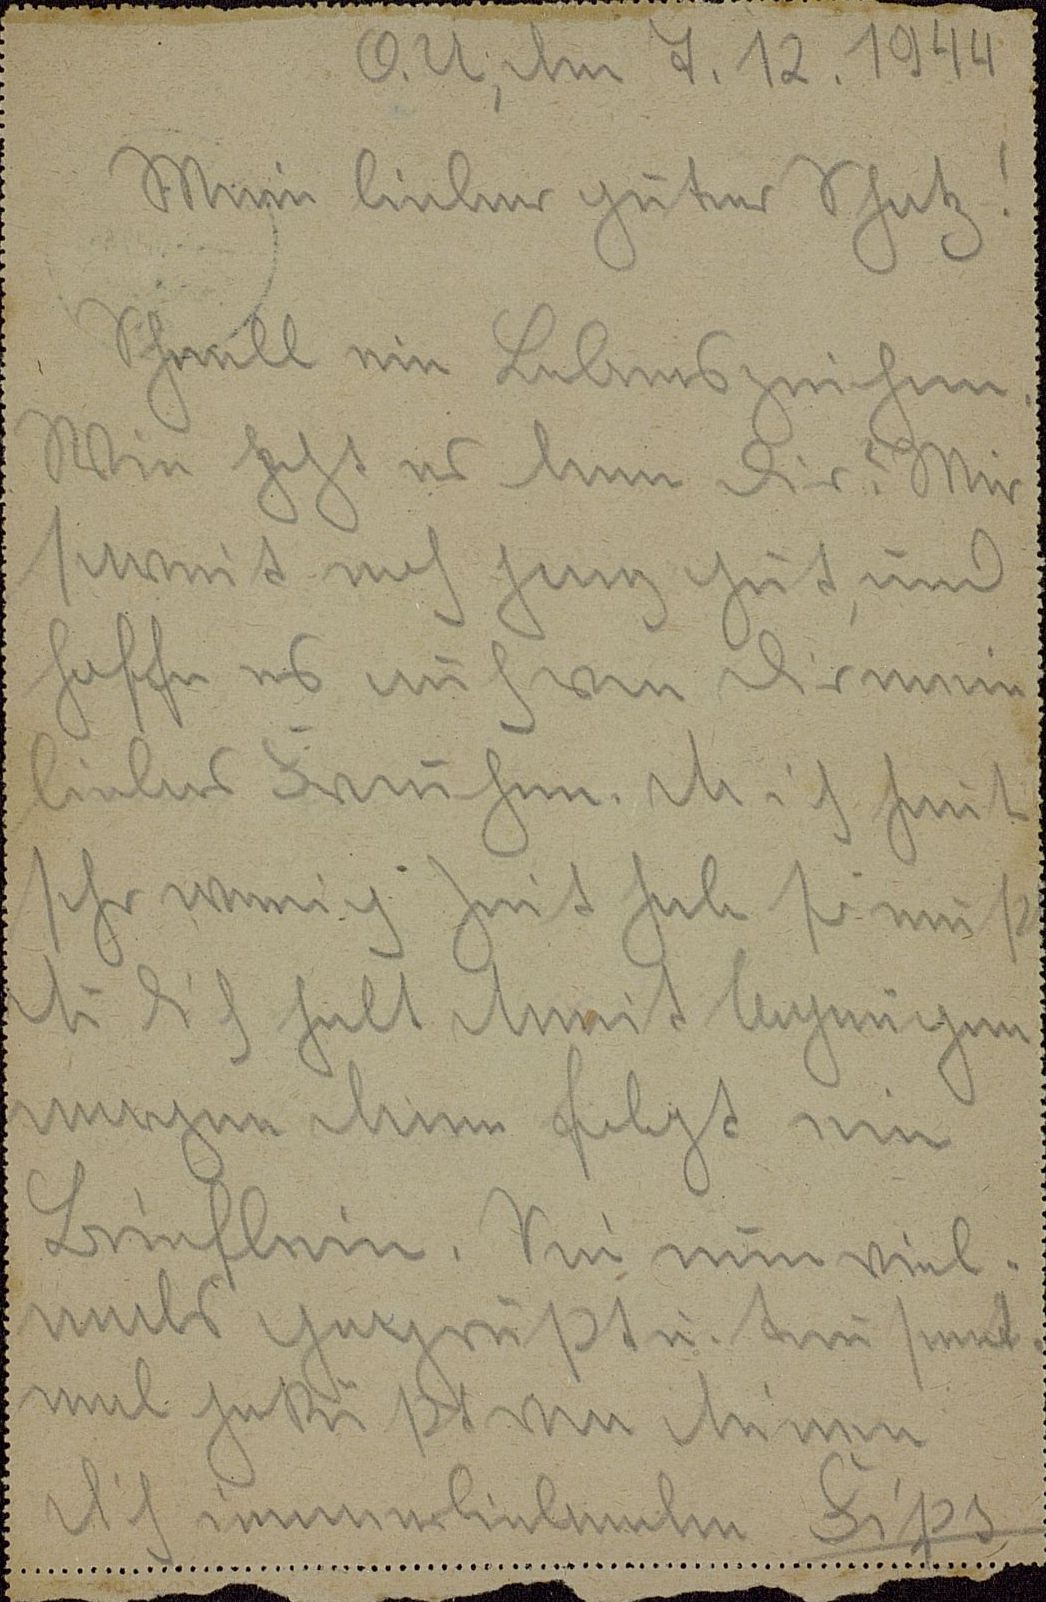 O.U., den 7.12.1944
Mein lieber guter Schatz!
Schnell ein Lebenszeichen.
Wie geht es denn Dir? Mir
soweit noch ganz gut, und
hoffe es auch von Dir mein
liebes Frauchen. Da ich heut
sehr wenig Zeit hab so mußt
Du Dich halt damit begnügen
morgen dann folgt ein
Brieflein. Sei nun viel-
mals gegrüßt u. tausend-
mal geküßt von deinen
Dich immerliebenden